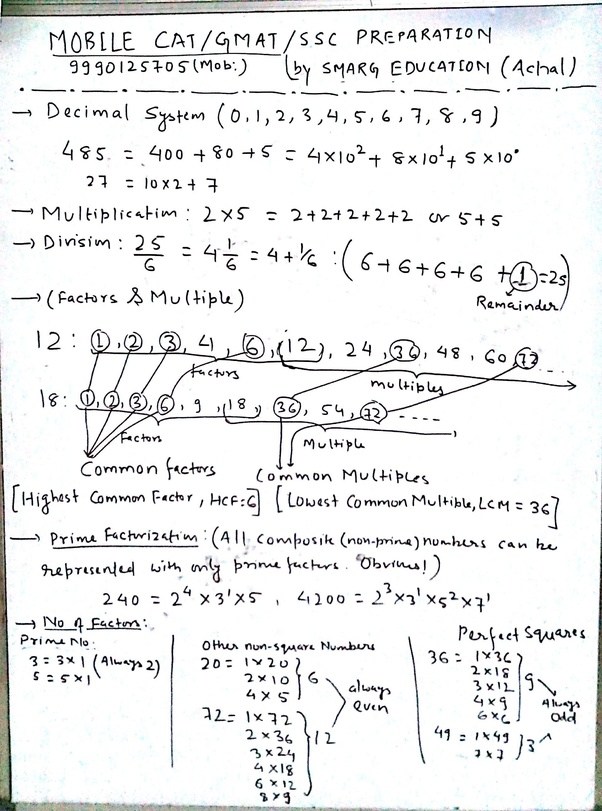 MOBILE CAT/GMAT/SSC PREPARATION
9990125705 (Mob:) by SMARG EDUCATION (Achal)
→ Decimal System (0,1,2,3,4,5,6,7,8,9)
485 = 400 + 80 + 5 = 4×10² + 8×10¹ + 5×10⁰
27 = 10×2 + 7
→ Multiplication : 2×5 = 2+2+2+2+2 or 5+5
→ Division : 25/6 = 4 1/6 = 4 + 1/6 : (6+6+6+6 + 1 = 25)
Remainder
→ (Factors & Multiple)
12 : 1, 2, 3, 4, 6, (12), 24, 36, 48, 60, 72 ....
Factors multiples
18 : 1, 2, 3, 6, 9, (18, 36, 54, 72 -----
Factors Multiple
Common factors Common Multiples
[Highest Common Factor, HCF=6] [Lowest Common Multiple, LCM = 36]
→ Prime Factorization : (All composite (non-prime) numbers can be
represented with only prime factors. Obvious!)
240 = 2⁴ × 3¹ × 5 , 4200 = 2³ × 3¹ × 5² × 7¹
→ No of Factors:
Prime No:
3 = 3×1 (Always 2)
5 = 5×1
Other non-square Numbers
20 = 1×20
2×10
4×5
6
72 = 1×72
2×36
3×24
4×18
6×12
8×9
12
always
even
Perfect Squares
36 = 1×36
2×18
3×12
4×9
6×6
9
49 = 1×49
7×7
3
Always
Odd